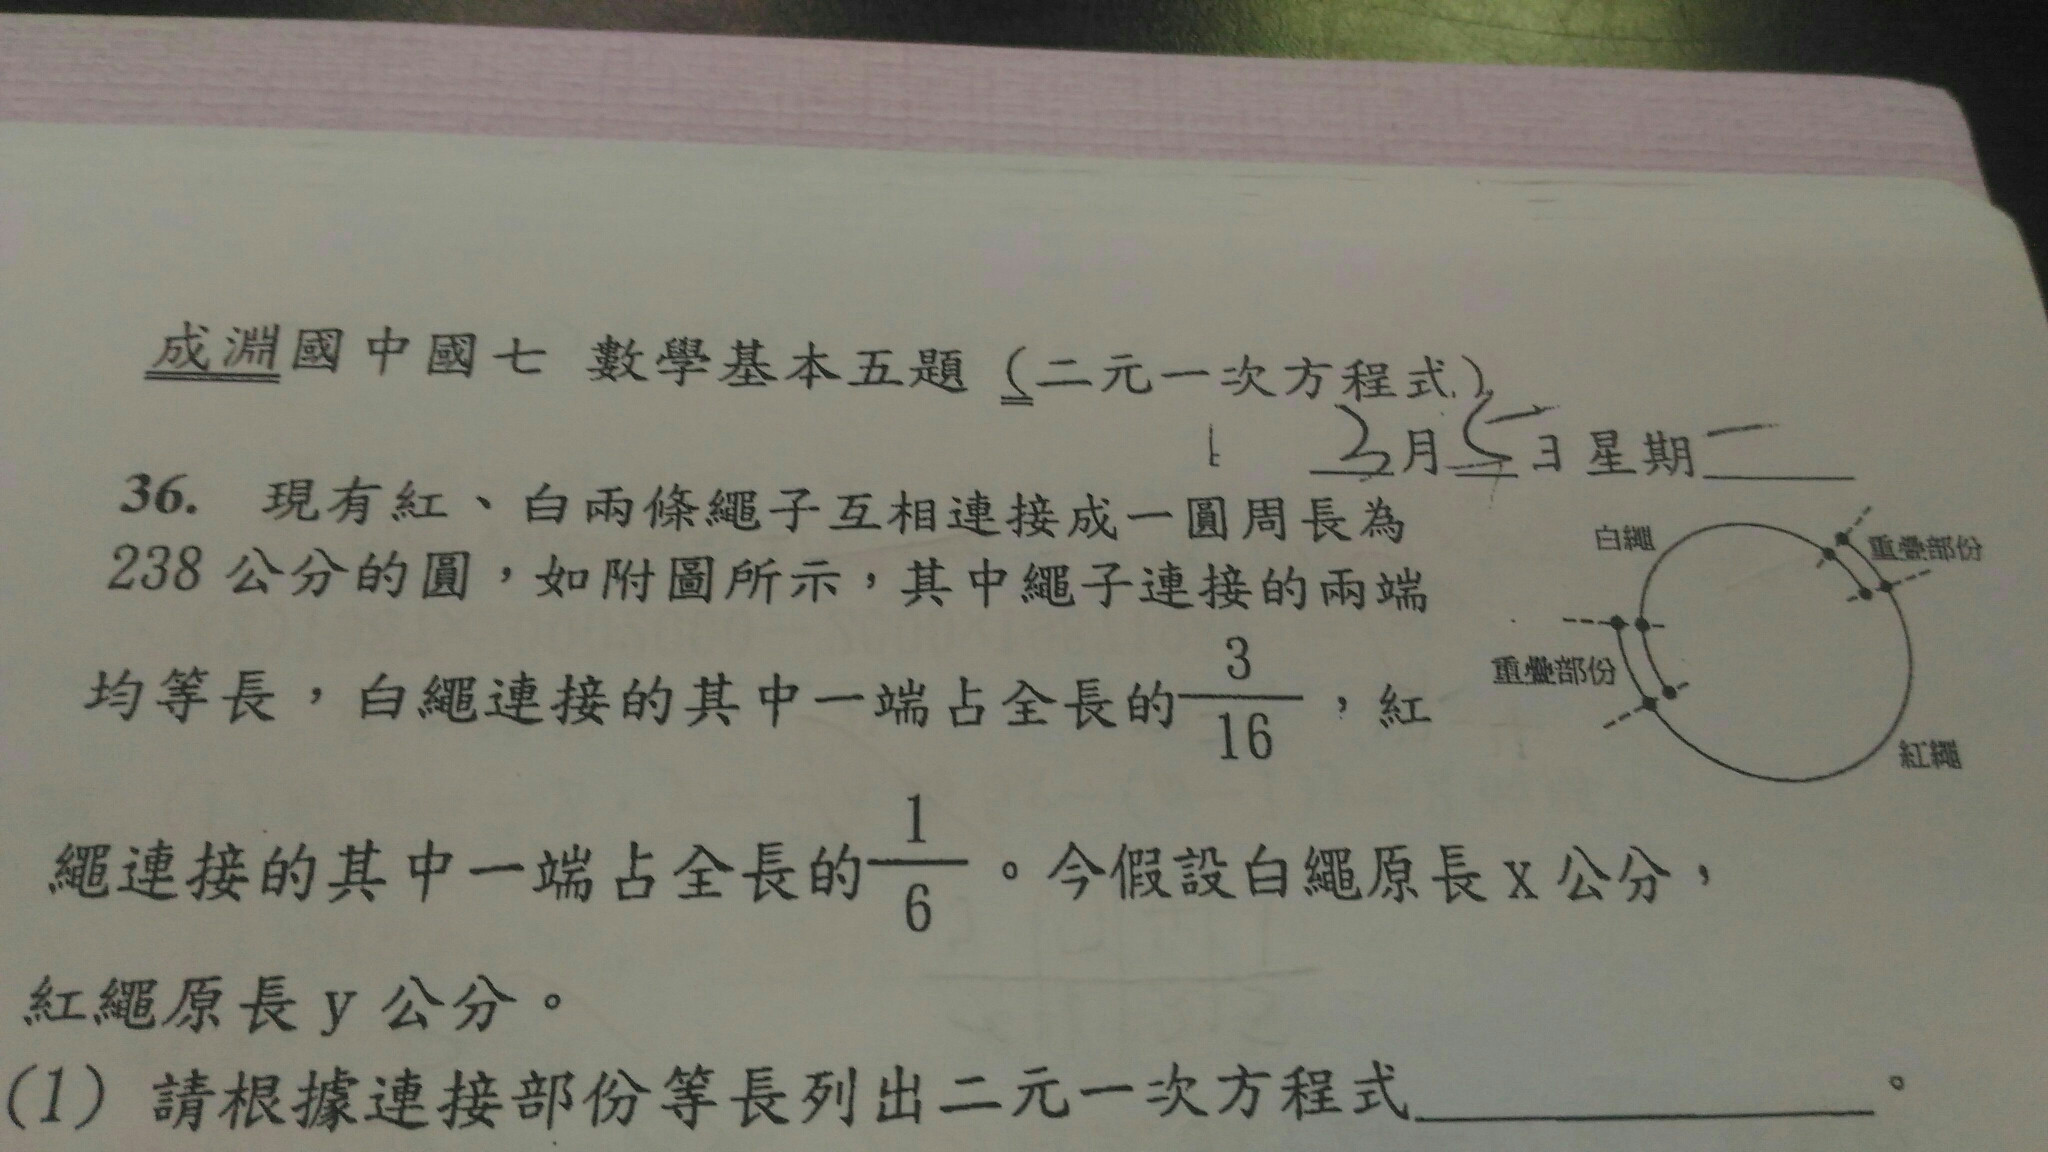 成淵國中國七 數學基本五題(二元一次方程式)
3月5日星期一
36. 現有紅、白兩條繩子互相連接成一圓周長為
238公分的圓，如附圖所示，其中繩子連接的兩端
均等長，白繩連接的其中一端占全長的3/16，紅
繩連接的其中一端占全長的1/6。今假設白繩原長x公分，
紅繩原長y公分。
(1) 請根據連接部份等長列出二元一次方程式____________。
白繩
重疊部份
重疊部份
紅繩